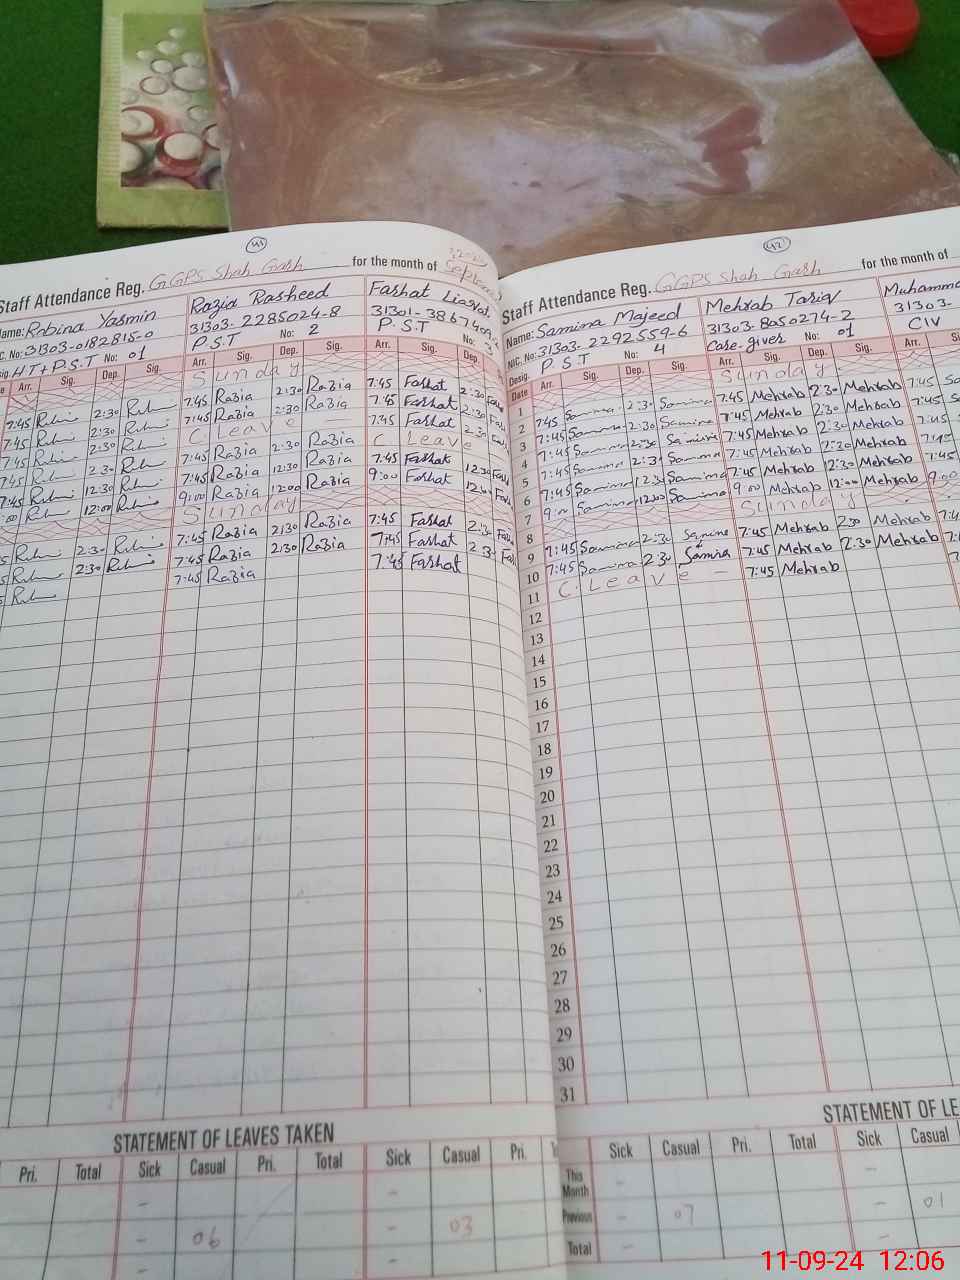 41
Staff Attendance Reg. GGPS Shah Garh for the month of Sept
Name: Robina Yasmin
31303-0182815-0
HT+P.S.T No: 01
Razia Rasheed
31303-2285024-8
P.S.T No: 2
Farhat Liaqat
P.S.T No: 3
Arr. Sig. Dep. Sig. Arr. Sig. Dep. Sig. Arr. Sig. Dep.
Sunday
7:45 2:30 7:45 Razia 2:30 Razia 7:45 Farhat 2:30
7:45 2:30 7:45 Razia 2:30 Razia 7:45 Farhat 2:30
7:45 2:30 C Leave 7:45 Farhat 2:30
7:45 2:30 7:45 Razia 2:30 Razia C Leave
7:45 12:30 7:45 Razia 12:30 Razia 7:45 Farhat 12:30
9:00 12:00 9:00 Razia 12:00 Razia 9:00 Farhat 12:00
Sunday
2:30 7:45 Razia 2:30 Razia 7:45 Farhat 2:30
2:30 7:45 Razia 2:30 Razia 7:45 Farhat 2:30
7:45 Razia 7:45 Farhat
STATEMENT OF LEAVES TAKEN
Pri. Total Sick Casual Pri. Total Sick Casual Pri.
- -
- 06 - 03
-
42
Staff Attendance Reg. GGPS Shah Garh for the month of
Name: Samina Majeed
NIC. No: 31303-2292559-6
Desig. P.S.T No: 4
Mehrab Tariq
31303-8050274-2
Care giver No: 01
Muhamma
31303-
CIV
Date Arr. Sig. Dep. Sig. Arr. Sig. Dep. Sig. Arr.
1 Sunday
2 7:45 Samina 2:30 Samina 7:45 Mehrab 2:30 Mehrab 7:45
3 7:45 Samina 2:30 Samina 7:45 Mehrab 2:30 Mehrab 7:45
4 7:45 Samina 2:30 Samina 7:45 Mehrab 2:30 Mehrab 7:45
5 7:45 Samina 2:30 Samina 7:45 Mehrab 2:30 Mehrab 7:45
6 7:45 Samina 12:30 Samina 7:45 Mehrab 12:30 Mehrab 7:45
7 9:00 Samina 12:00 Samina 9:00 Mehrab 12:00 Mehrab 9:00
8 Sunday
9 7:45 Samina 2:30 Samina 7:45 Mehrab 2:30 Mehrab 7:45
10 7:45 Samina 2:30 Samina 7:45 Mehrab 2:30 Mehrab
11 C. Leave - 7:45 Mehrab
12
13
14
15
16
17
18
19
20
21
22
23
24
25
26
27
28
29
30
31
STATEMENT OF LE
Sick Casual Pri. Total Sick Casual
This Month - -
Previous - 07 - 01
Total - -
11-09-24 12:06